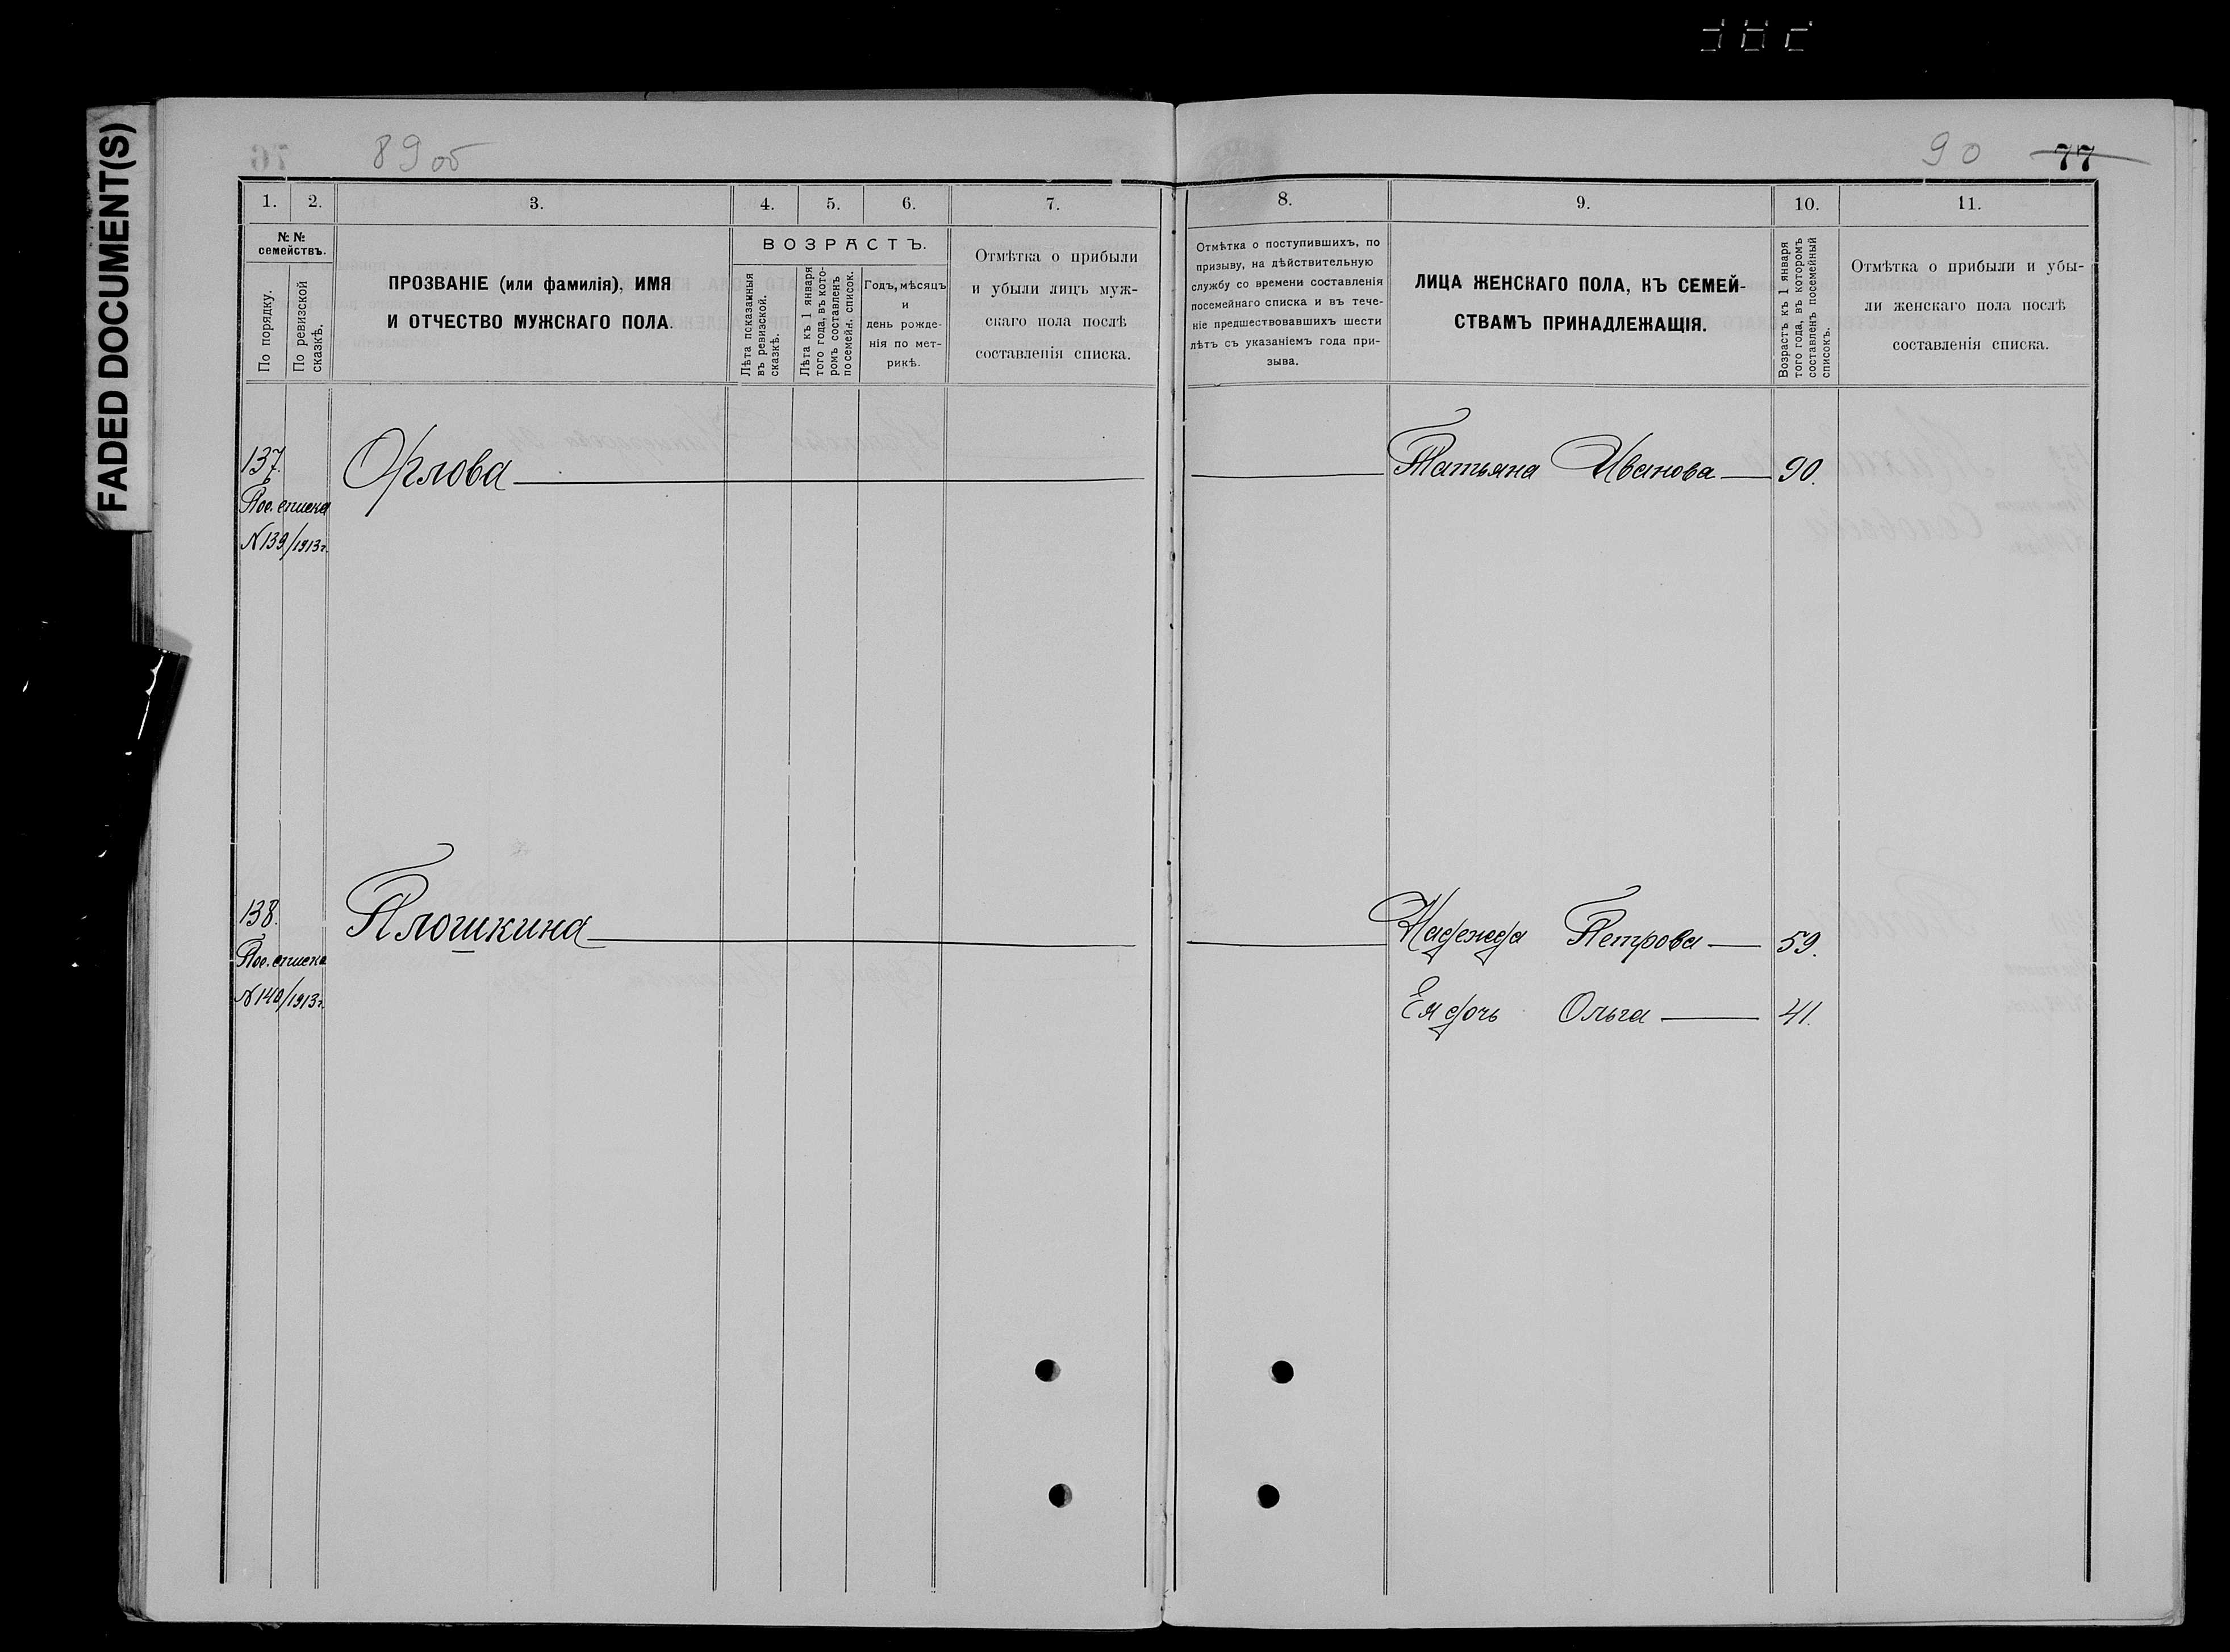 FADED DOCUMENT(S)
89 об
90 77
1. 2. 3. 4. 5. 6. 7.
№ №
семействъ.
По порядку.
По ревизской
сказкѣ.
ПРОЗВАНІЕ (или фамилія), ИМЯ
И ОТЧЕСТВО МУЖСКАГО ПОЛА.
ВОЗРАСТЪ.
Лѣта показанныя
въ ревизской.
сказкѣ.
Лѣта къ 1 января
того года, въ кото-
ромъ составленъ
посемейн. список.
Годъ, мѣсяцъ
и
день рожде-
нія по мет-
рикѣ.
Отмѣтка о прибыли
и убыли лицъ муж-
скаго пола послѣ
составленія списка.
8. 9. 10. 11.
Отмѣтка о поступившихъ, по
призыву, на дѣйствительную
службу со времени составленія
посемейнаго списка и въ тече-
ніе предшествовавшихъ шести
лѣтъ съ указаніемъ года при-
зыва.
ЛИЦА ЖЕНСКАГО ПОЛА, КЪ СЕМЕЙ-
СТВАМЪ ПРИНАДЛЕЖАЩІЯ.
Возрастъ къ 1 января
того года, въ которомъ
составленъ посемейный
списокъ.
Отмѣтка о прибыли и убы-
ли женскаго пола послѣ
составленія списка.
137. Орлова Татьяна Иванова 90.
Пос. списка
№ 139/1913 г.
138. Плошкина Надежда Петрова 59.
Пос. списка
№ 140/1913 г. Ея дочь Ольга 41.